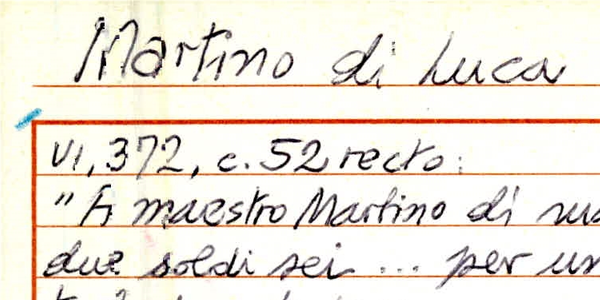 Martino di Luca
VI, 372, c. 52 recto:
"A maestro Martino di
due soldi sei ... per